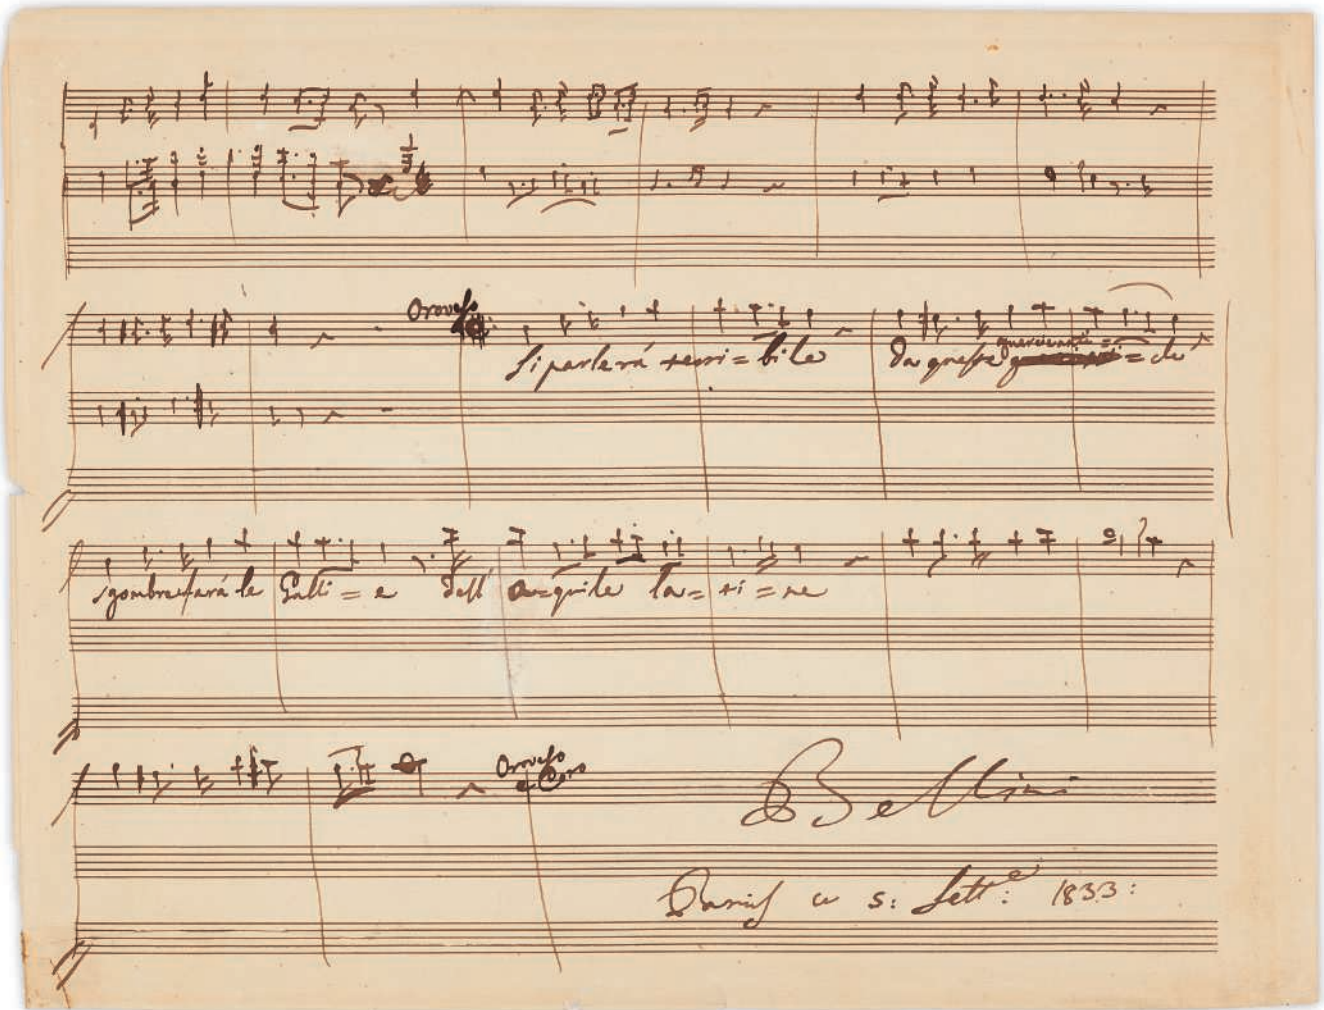 Oroveso
si parlerá terri = bile da queste guerci anti = che
sgombre fará le Galli = e dell' a = quile la = ti = ne
Oroveso
e Coro
Bellini
Paris ce 5: Sett.e 1833: